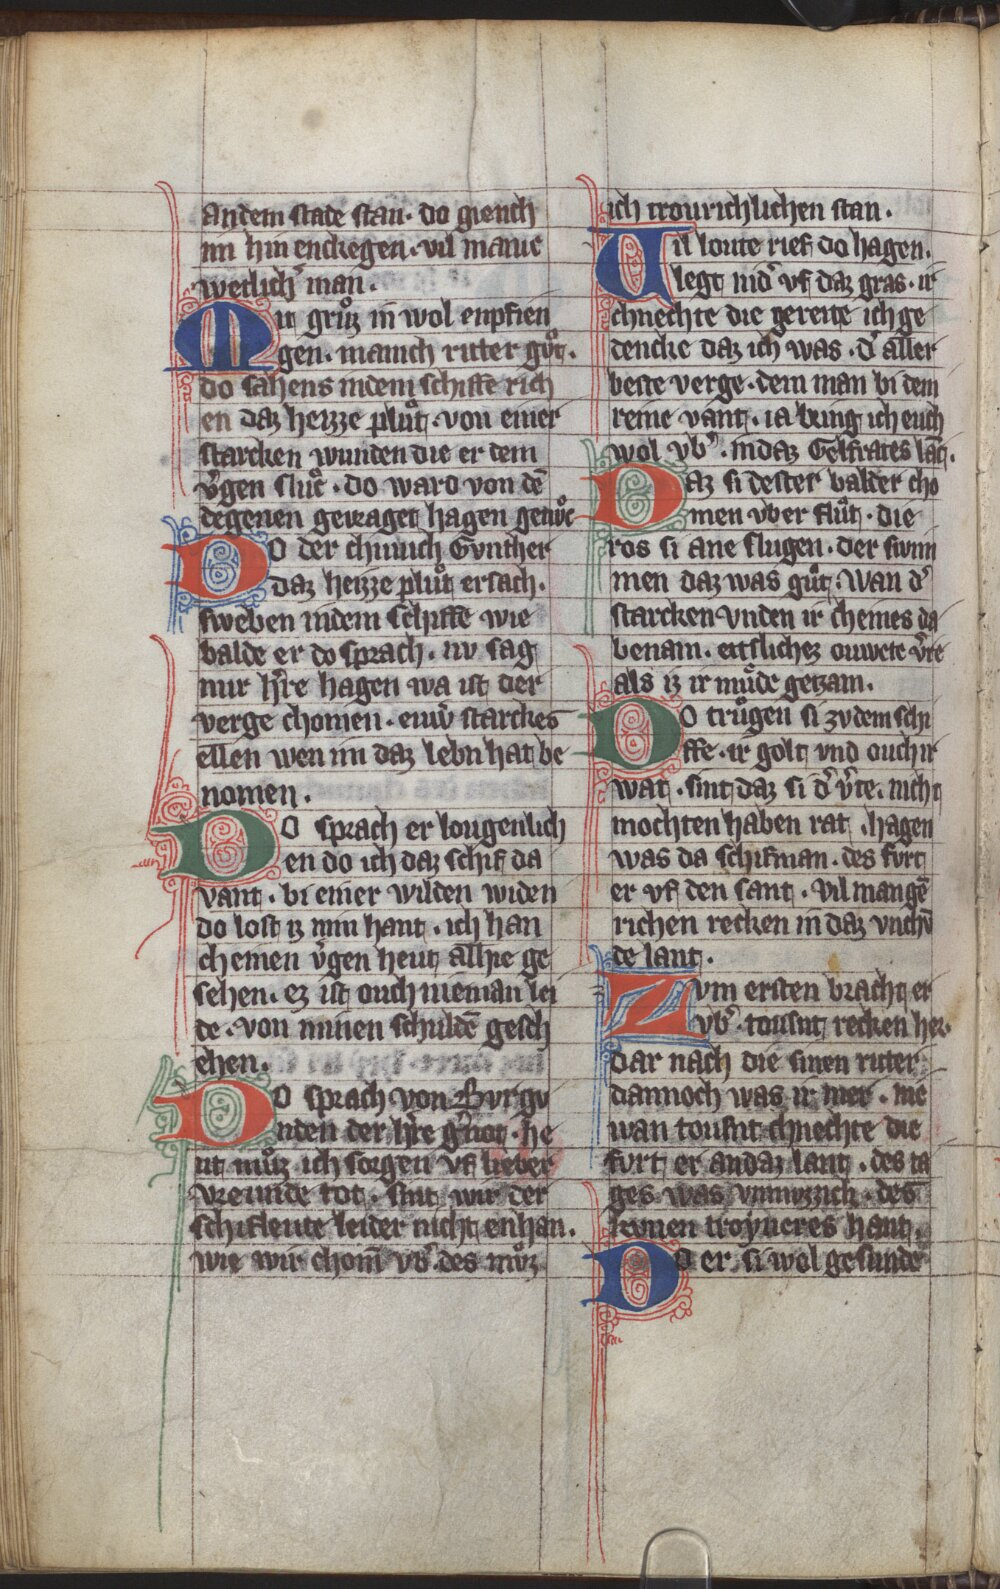 andem stade stan · do giench
im hin enckegen · vil manic
wetlich̾ man ·
Mit gruͦz in wol enpfien
gen · manich ritter guͦt ·
do sahens indem schiffe rich
en daz heizze pluͦt · von einer
starcken wunden die er dem
v̾gen sluͦc · do ward von dē
degenen gevraget hagen genuͦc
Do der chunich Gvnther
daz heizze pluͦt ersach ·
sweben indem schiffe wie
balde er do sprach · nv sag
mir h̾re hagen wa ist der
verge chomen · ewr̾ starckes
ellen wen im daz lebn hat be
nomen ·
Do sprach er lougenlich
en do ich daz schif da
vant · bi einer wilden widen
do lost iz min hant · ich han
cheinen v̾gen heut alhie ge
sehen · ez ist ouch nieman lei
de · von minen schuldē gesch
ehen ·
Do sprach von Bvrgv
nden der h̾re g̾not · he
ut muͦz ich sorgen vf lieber
vreunde tot · sint wir der
schifleute leider nicht enhan ·
wie wir chom̄ vb̾ des muͦz
ich trourichlichen stan ·
Vil loute rief do hagen ·
legt nid̾ vf daz gras · ir
chnechte die gereite ich ge
dencke daz ich was · d̾ aller
beste verge · dem man bi dem
reine vant · ia bring ich euch
wol vb̾ · indaz Gelfrates lāt ·
Daz si dester balder cho
men vber fluͦt · die
ros si ane slugen · der swim
men daz was guͦt · Wan d̾
starcken vnden ir cheines da
benam · etslichez ouwete v̾re
als iz ir muͦde gezam ·
Do truͦgen si zv dem schi
ffe · ir golt vnd ouch ir
wat · sint daz si d̾ v̾te · nicht
mochten haben rat · hagen
was da schifman · des fvrt
er vf den sant · vil mangē
richen recken in daz vnchv̄
de lant ·
Zvm ersten bracht er
vb̾ · tousnt recken her ·
dar nach die sinen ritter
dannoch was ir mer · me
wan tousnt chnechte die
fvrt er andaz lant · des ta
ges was vnmvzzich · des
kvnen troyneres hant ·
Do er si wol gesunde